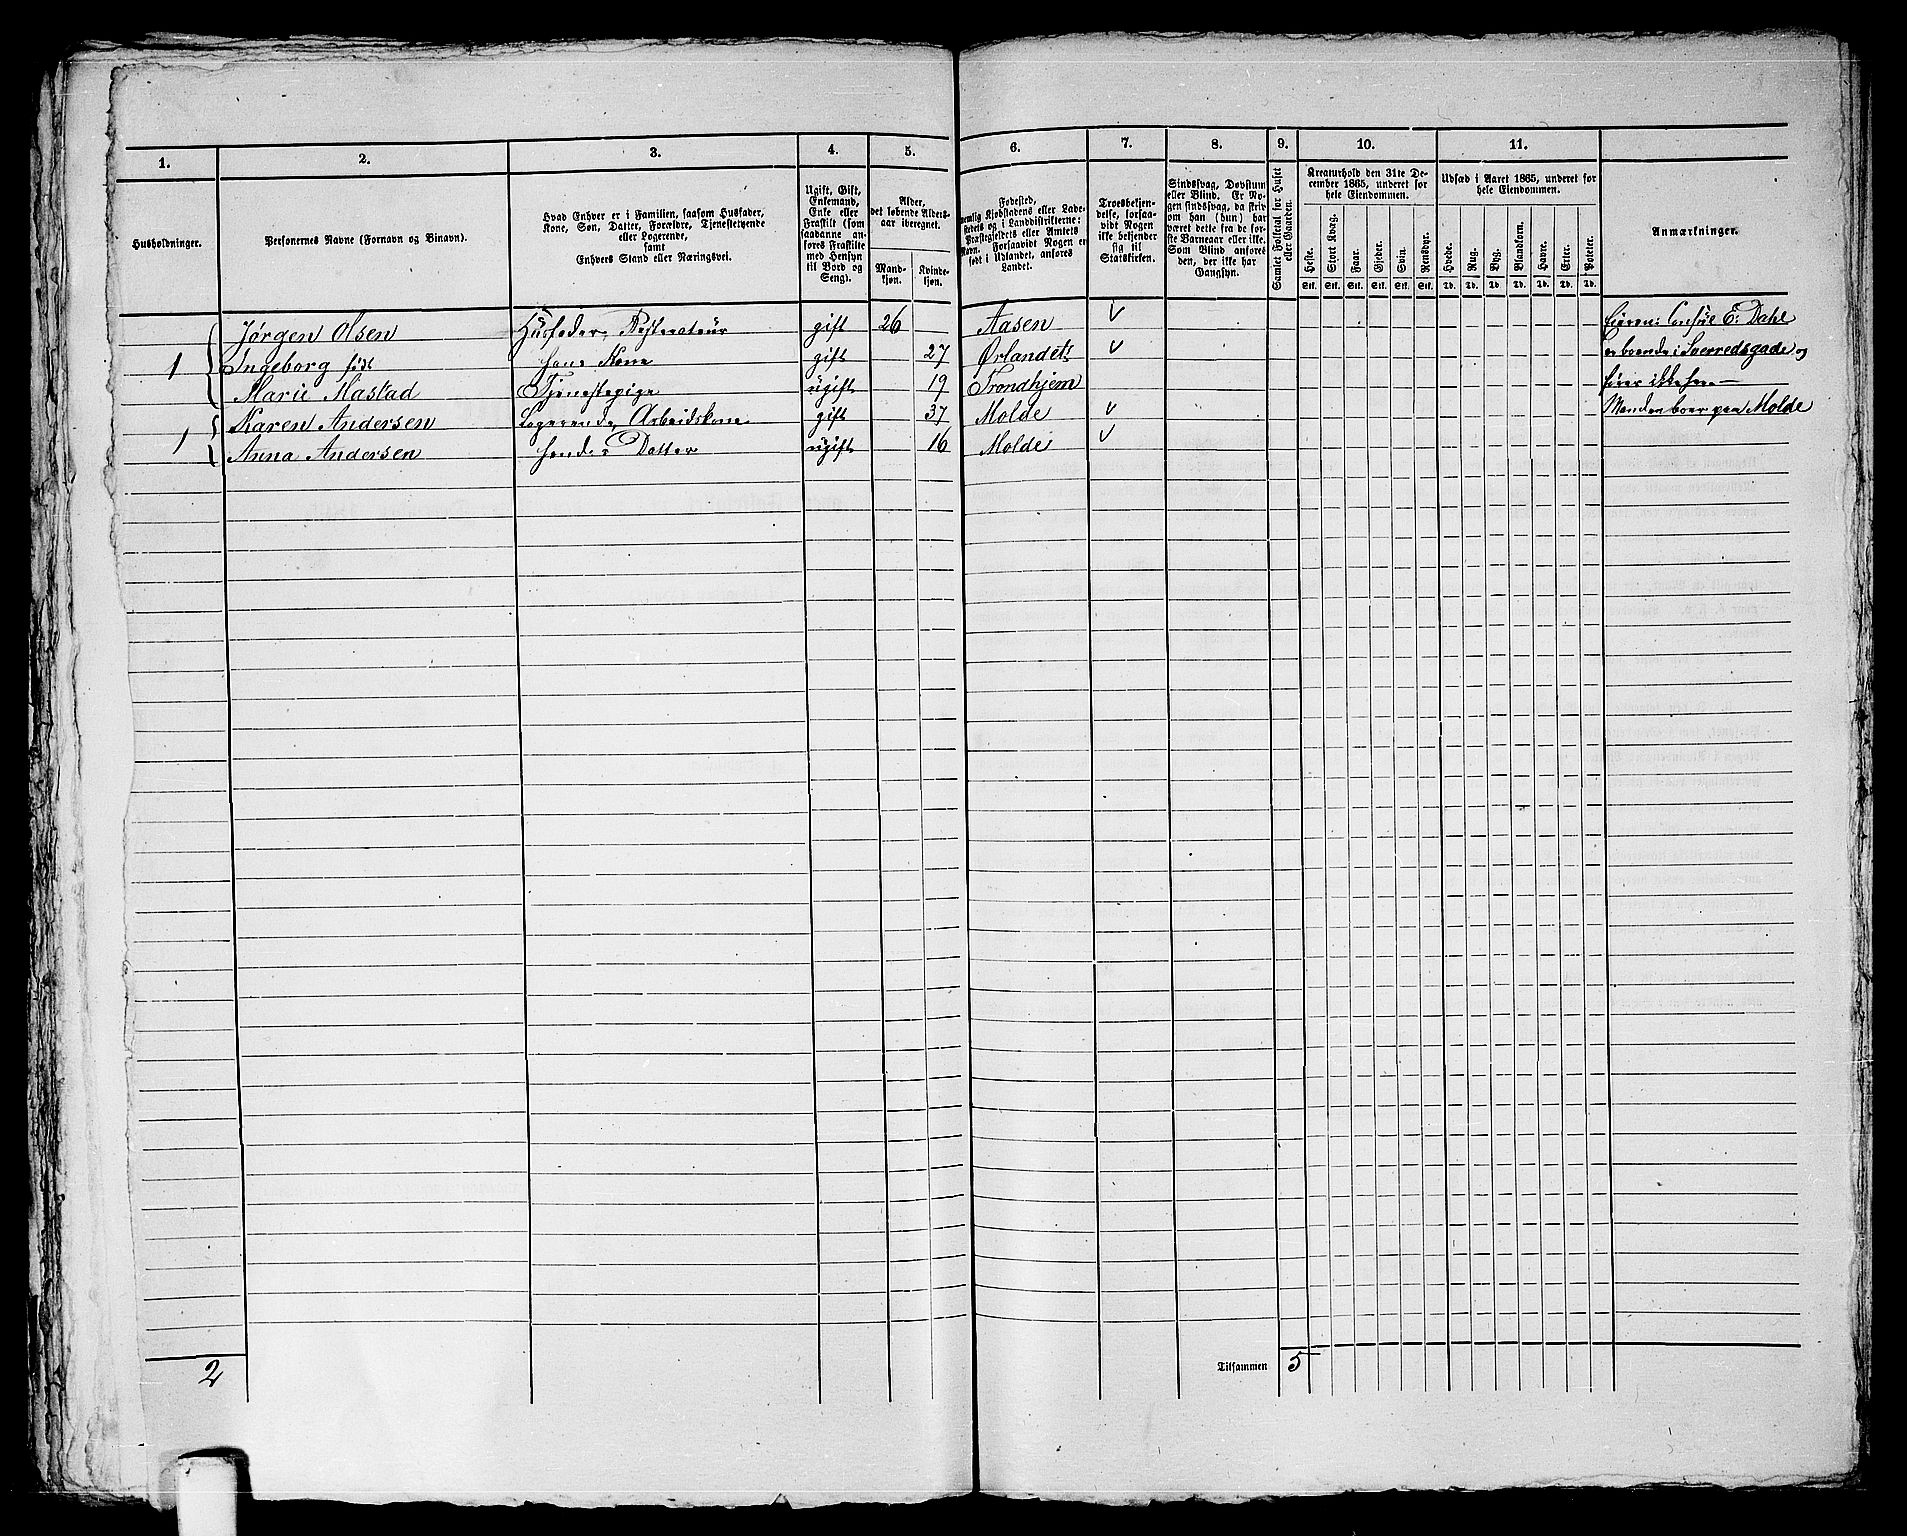 1. 2. 3. 4. 5. 6. 7. 8. 9. 10. 11.
Husholdninger.
Personernes Navne (Fornavn og Binavn).
Hvad Enhver er i Familien, saasom Husfader,
Kone, Søn, Datter, Forældre, Tjenestetyende
eller Logerende,
samt
Enhvers Stand eller Næringsvei.
Ugift, Gift,
Enkemand,
Enke eller
Fraskilt (som
saadanne an-
føres Fraskilte
med Hensyn
til Bord og
Seng).
Alder,
det løbende Alders-
aar iberegnet.
Mand-
kjøn.
Kvinde-
kjøn.
Fødested,
nemlig Kjøbstadens eller Lade-
stedets og i Landdistrikterne:
Præstegjeldets eller Amtets
Navn. Forsaavidt Nogen er
født i Udlandet, anføres
Landet.
Troesbekjen-
delse, forsaa-
vidt Nogen
ikke bekjender
sig til
Statskirken.
Sindssvag, Døvstum
eller Blind. Er No-
gen sindssvag, da skriv
om han (hun) har
været dette fra de før-
ste Barneaar eller ikke.
Som Blind anføres
den, der ikke har
Gangsyn.
Samlet Folketal for Huset
eller Gaarden.
Kreaturhold den 31te De-
cember 1865, underet for
hele Eiendommen.
Heste. Stort Kvæg. Faar. Gjeder. Svin. Rensdyr.
Stk. Stk. Stk. Stk. Stk. Stk.
Udsæd i Aaret 1865, underet for
hele Eiendommen.
Hvede. Rug. Byg. Blandkorn. Havre. Erter. Poteter.
Td. Td. Td. Td. Td. Td. Td.
Anmærkninger.
Jørgen Olsen Husfader, Restauratør gift 26 Aasen v Eieren: Consul E: Dahl
1 Ingeborg født hans Kone gift 27 Ørlandet v er boende i Sverresgade og
Marie Mastad Tjenestepige ugift 19 Trondhjem
Karen Andersen Logerende, Arbeidskone gift 37 Molde v Manden boer paa Molde
1 Anna Andersen hendes Datter ugift 16 Molde v
2 Tilsammen 5